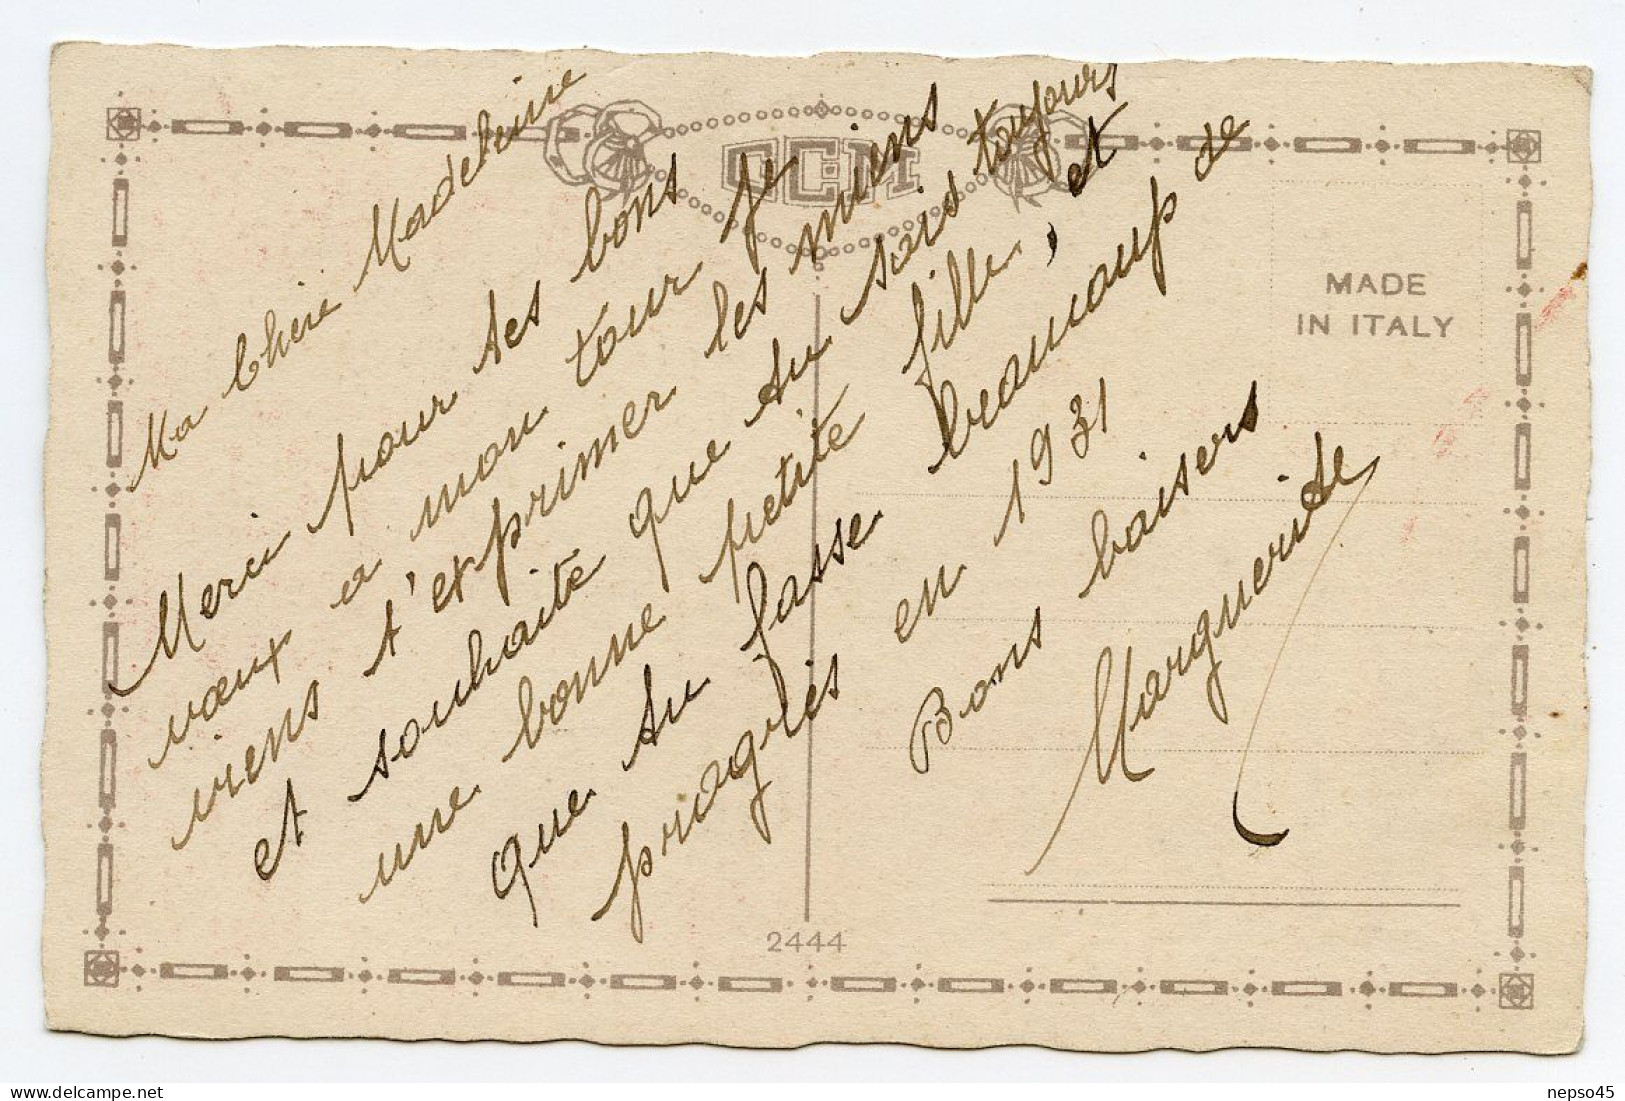 Ma Chère Madeleine
Merci pour tes bons
vœux a mon tour je
viens t'exprimer les miens
et souhaite que tu sois toujours
une bonne petite fille, et
que tu fasse beaucoup de
progrès en 1931
Bons baisers
Marguerite
CCM
MADE
IN ITALY
2444
nepso45